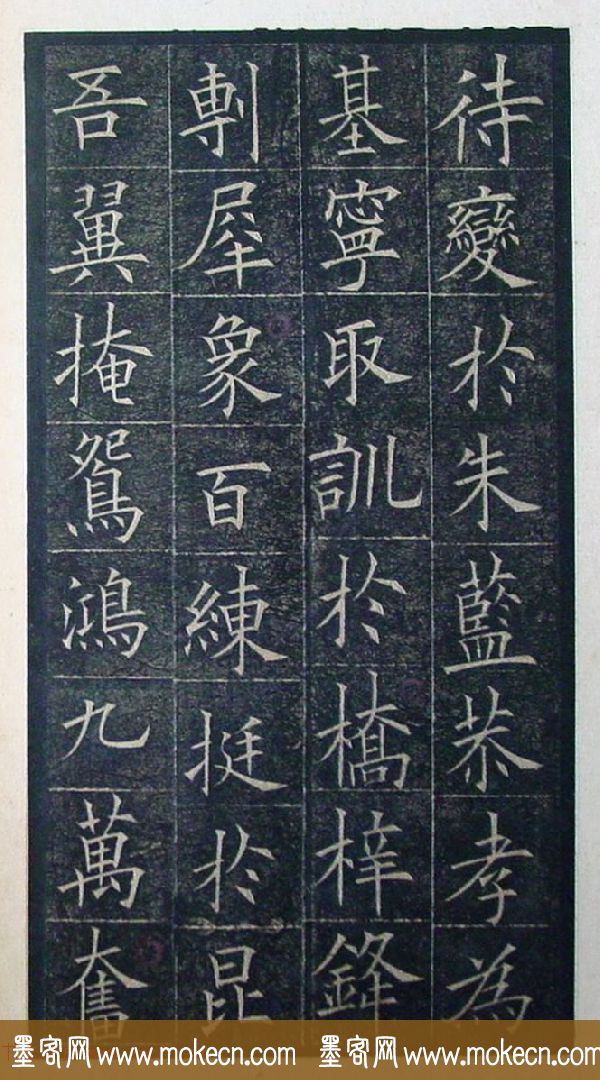 待變於朱藍恭孝為
基寧取訓於橋梓鋒
剸犀象百練挺於昆
吾翼掩鴛鴻九萬奮
墨客网 www.mokecn.com 墨客网 www.mokecn.com